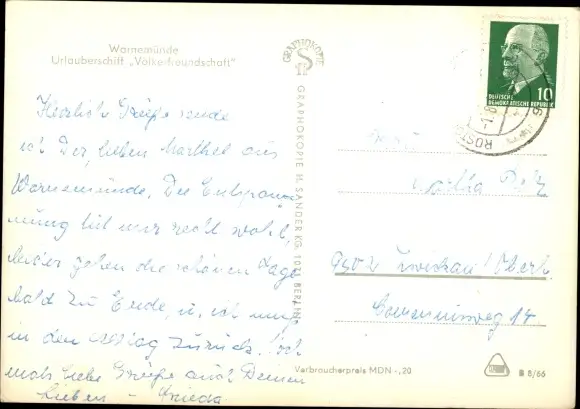 Warnemünde
Urlauberschiff „Völkerfreundschaft“
Herzliche Grüße sende
ich Dir, lieben Marthel aus
Warnemünde. Die Entspan
nung tut mir recht wohl,
leider gehen die schönen Tage
bald zu Ende, u. ich muß
in den Alltag zurück. Noch
mals liebe Grüße auch Deinen
Lieben - Frieda
GRAPHOKOPIE
GRAPHOKOPIE H. SANDER KG, BERLIN
DEUTSCHE
DEMOKRATISCHE REPUBLIK
10
ROSTO
Martha
9502 Zwickau/Oberh.
Communisweg 14
Verbraucherpreis MDN -,20
B 8/66